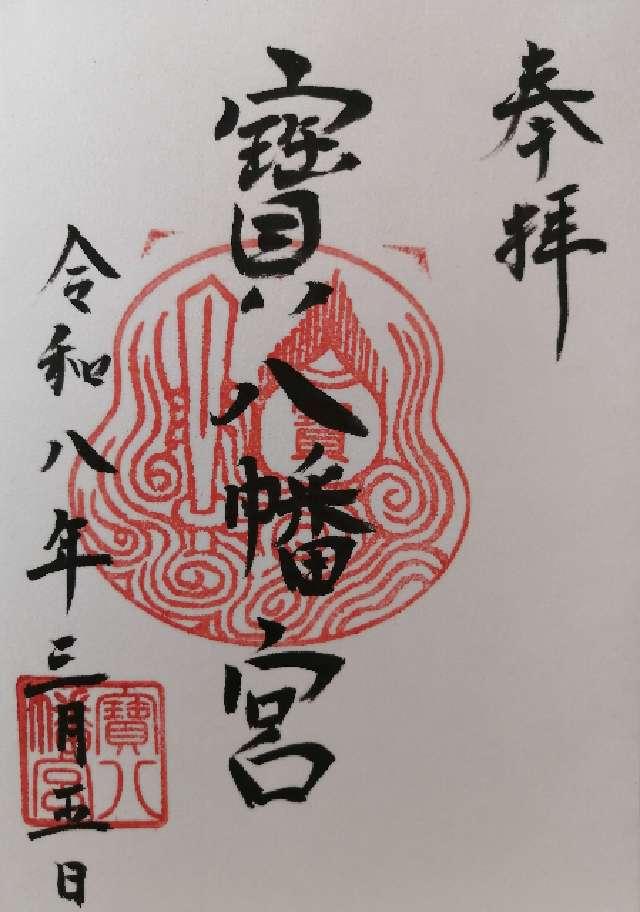 奉拝
寳八幡宮
令和八年三月五日
寳八
幡宮